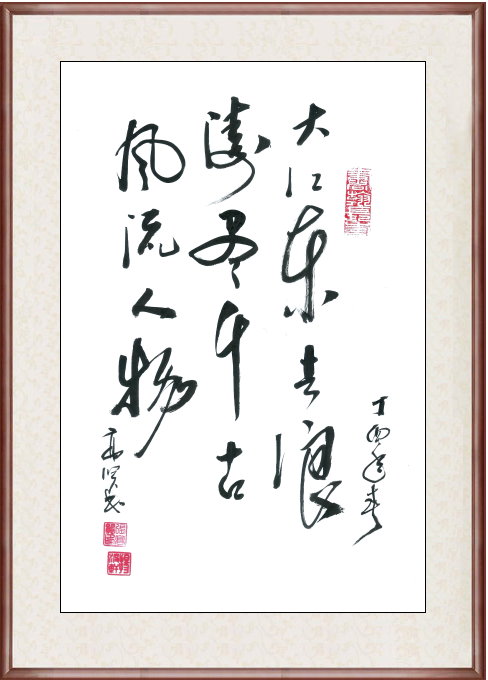 丁酉春
大江东去浪
淘尽千古
风流人物